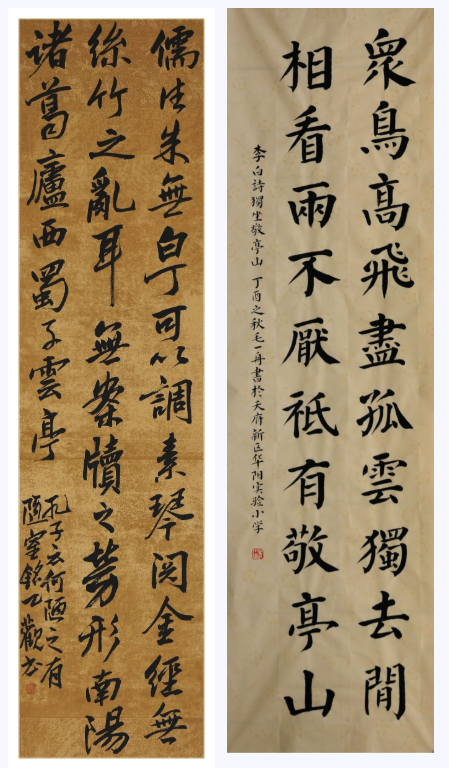 儒往来無白丁可以調素琴閲金經無
絲竹之亂耳無案牘之勞形南陽
諸葛廬西蜀子雲亭
孔子云何陋之有
陋室銘
衆鳥高飛盡孤雲獨去閒
相看兩不厭祗有敬亭山
李白詩獨坐敬亭山 丁酉之秋毛一舟書於天府新区华阳实验小学